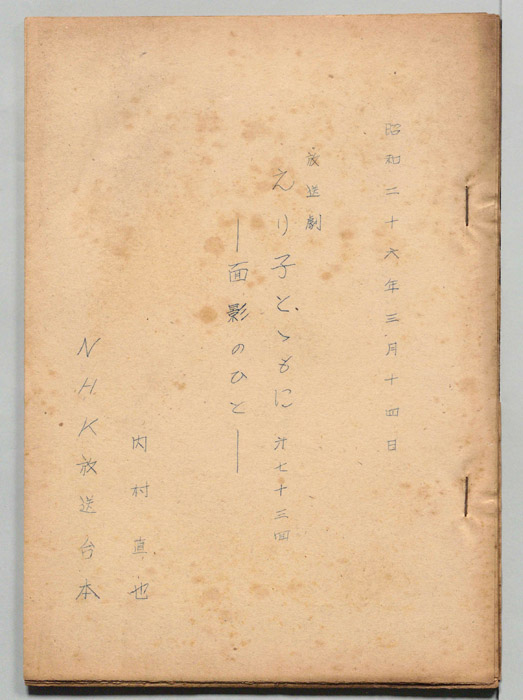 昭和二十六年三月十四日
放送劇
えり子とゝもに 第七十三回
―面影のひと―
内村直也
NHK放送台本